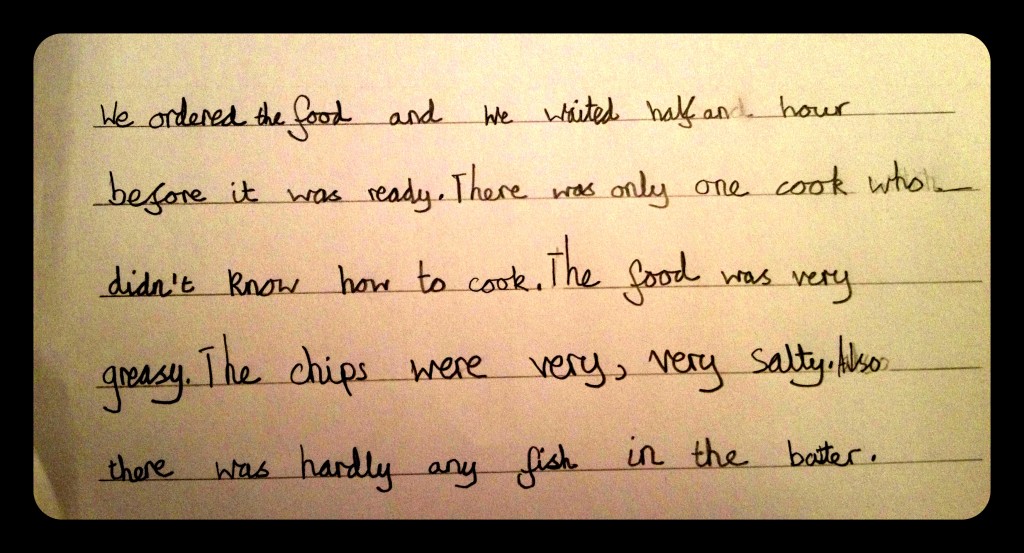 We ordered the food and we waited half an hour
before it was ready. There was only one cook who
didn't know how to cook. The food was very
greasy. The chips were very, very salty. Also
there was hardly any fish in the batter.